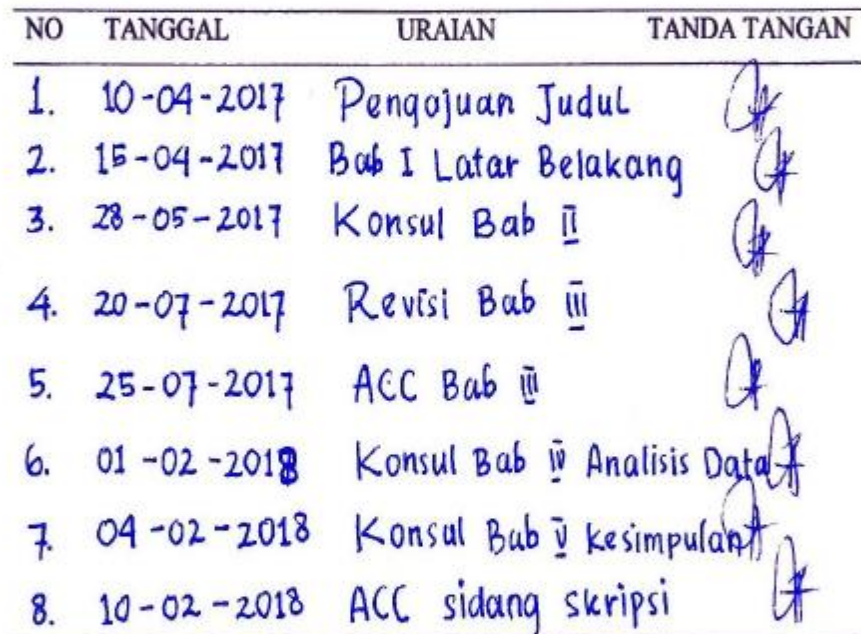 NO TANGGAL URAIAN TANDA TANGAN
1. 10-04-2017 Pengajuan Judul
2. 15-04-2017 Bab I Latar Belakang
3. 28-05-2017 Konsul Bab II
4. 20-07-2017 Revisi Bab III
5. 25-07-2017 ACC Bab III
6. 01-02-2018 Konsul Bab IV Analisis Data
7. 04-02-2018 Konsul Bab V kesimpulan
8. 10-02-2018 ACC sidang skripsi